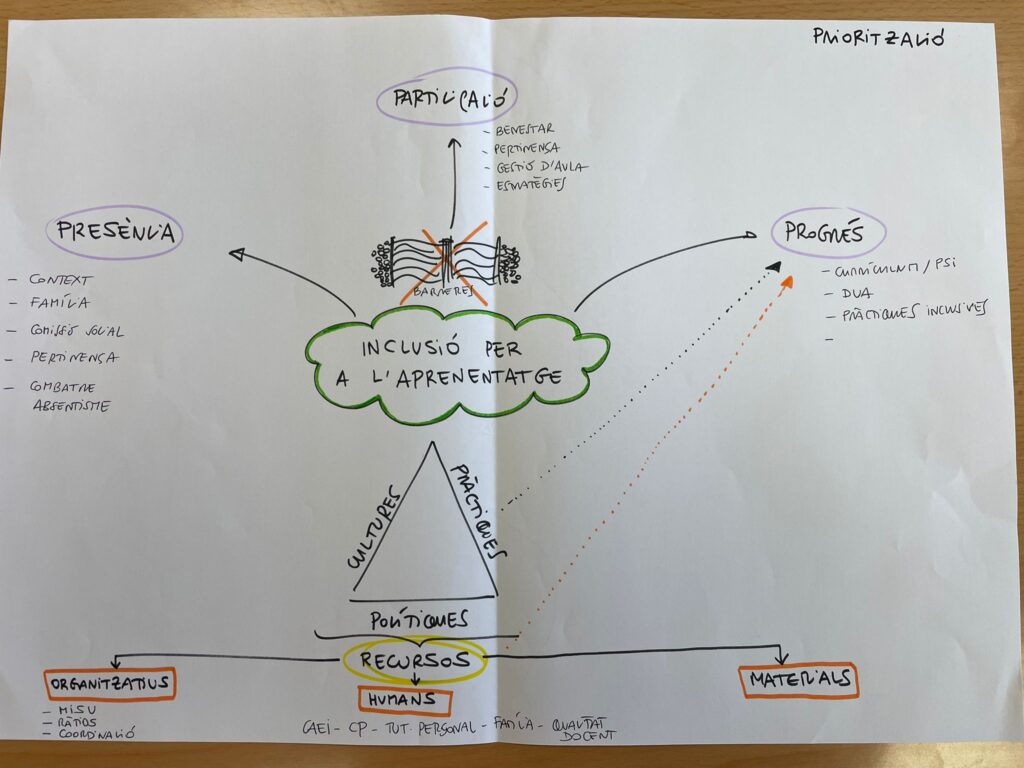 PRIORITZACIÓ
PARTICIPACIÓ
- BENESTAR
- PERTINENÇA
- GESTIÓ D'AULA
- ESTRATÈGIES
PRESÈNCIA
- CONTEXT
- FAMÍLIA
- COMISSIÓ SOCIAL
- PERTINENÇA
- COMBATRE
ABSENTISME
PROGRÉS
- CURRÍCULUM / PSI
- DUA
- PRÀCTIQUES INCLUSIVES
-
BARRERES
INCLUSIÓ PER
A L'APRENENTATGE
CULTURES
PRÀCTIQUES
POLÍTIQUES
RECURSOS
ORGANITZATIUS
- MISU
- RÀTIOS
- COORDINACIÓ
HUMANS
CAEI - CP - TUT. PERSONAL - FAMÍLIA - QUALITAT
DOCENT
MATERIALS